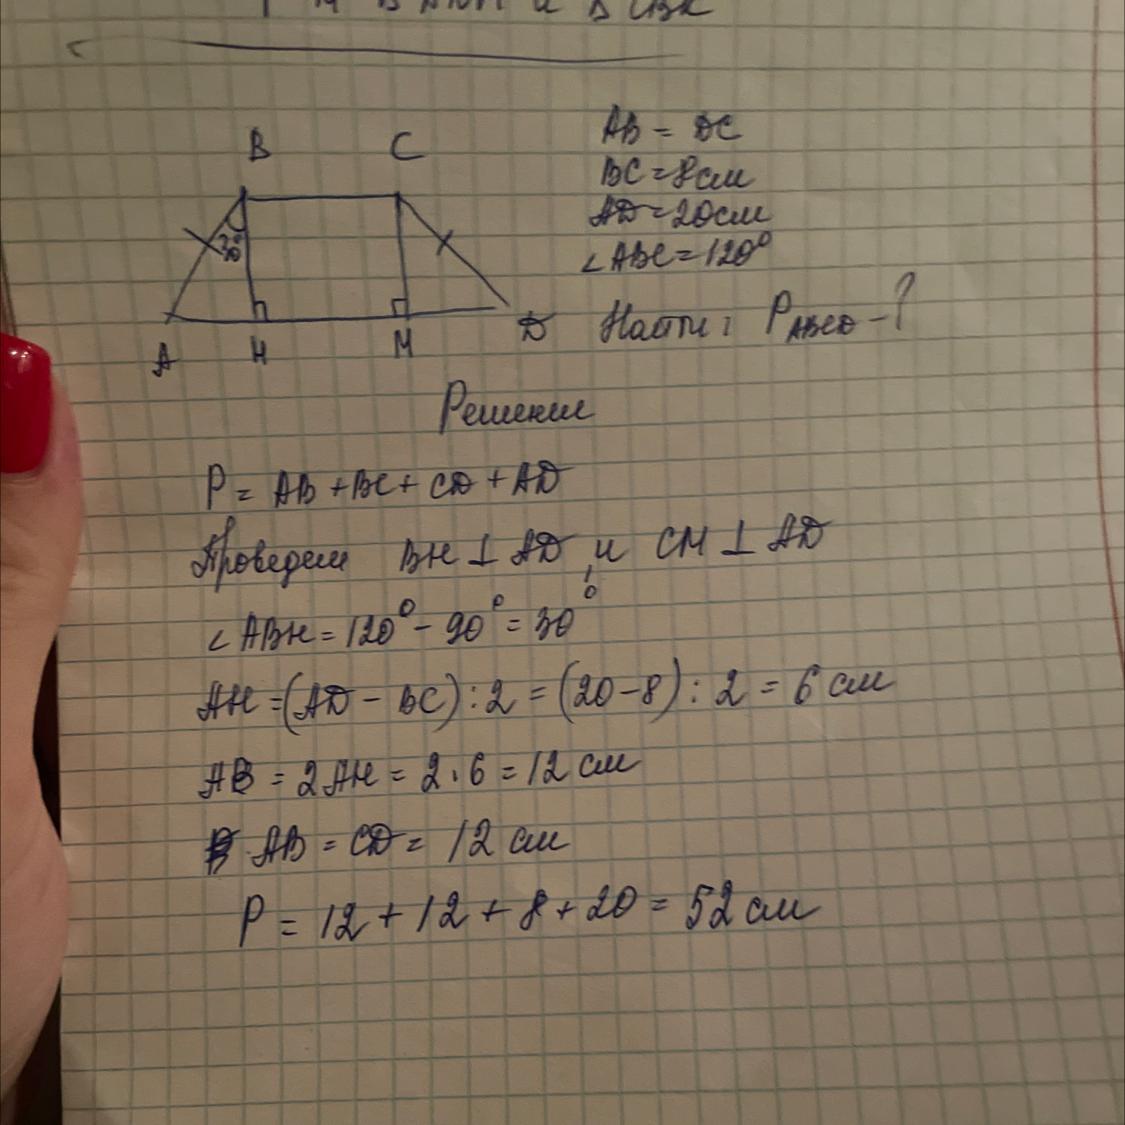 B C
30°
A H M D
AB = DC
BC = 8 см
AD = 20 см
∠ABC = 120°
Найти: P ABCD - ?
Решение
P = AB + BC + CD + AD
Проведем BH ⊥ AD и CM ⊥ AD
∠ABH = 120° - 90° = 30°
AH = (AD - BC) : 2 = (20 - 8) : 2 = 6 см
AB = 2AH = 2 · 6 = 12 см
AB = CD = 12 см
P = 12 + 12 + 8 + 20 = 52 см